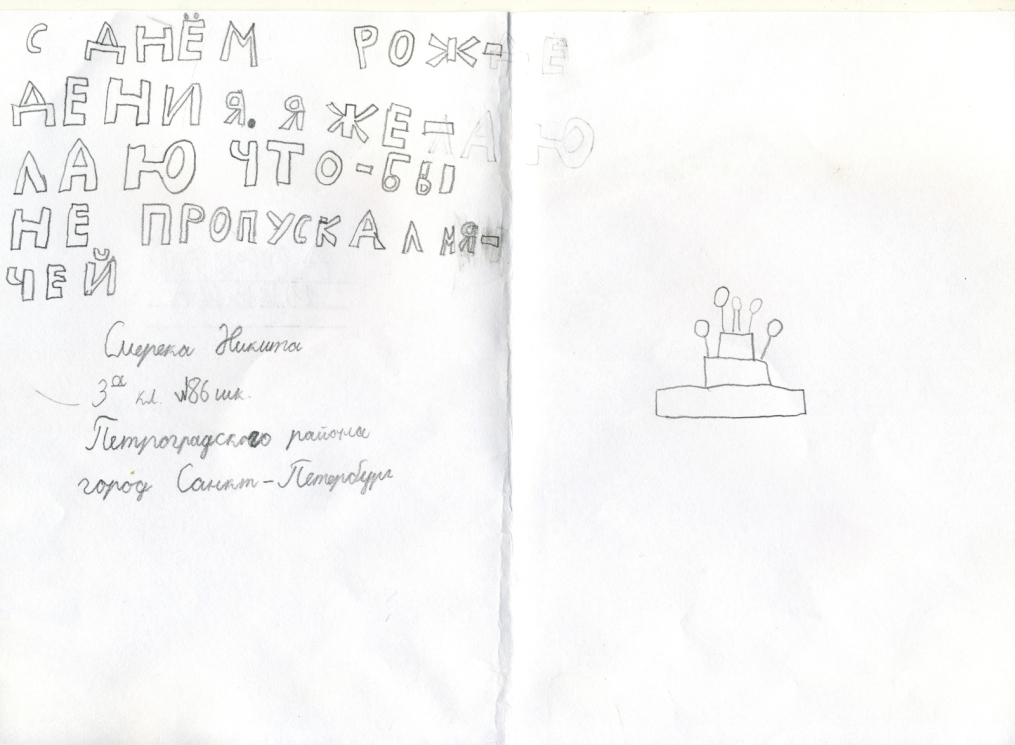 С ДНЁМ РОЖ-
ДЕНИЯ. Я ЖЕ-
ЛАЮ ЧТО-БЫ
НЕ ПРОПУСКАЛ МЯ-
ЧЕЙ
Смерека Никита
3а кл. №86 шк.
Петроградского района
город Санкт-Петербург